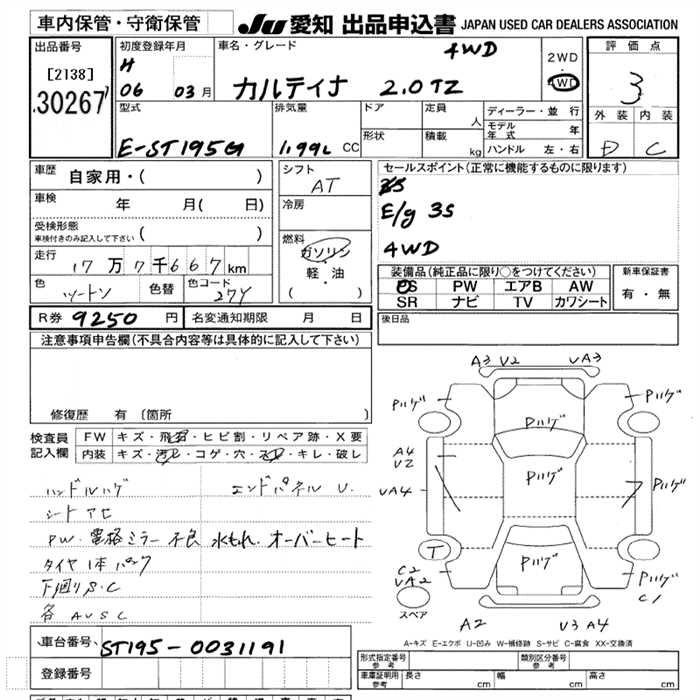 車内保管・守衛保管 JU 愛知 出品申込書 JAPAN USED CAR DEALERS ASSOCIATION
出品番号 [2138] 30267
初度登録年月 H 06 03月
車名・グレード 4WD カルディナ 2.0 TZ
2WD・4WD
評価点 3
外装 内装
D C
型式 E-ST195G
排気量 1.99L CC
ドア 定員 人
形状 積載 kg
ディーラー・並行
モデル年式 年
ハンドル 左・右
車歴 自家用・( )
車検 年 月( 日)
受検形態 車検付きのみ記入して下さい ( )
走行 17万7千667km
色 ツートン 色替 色コード 27Y
シフト AT
冷房
燃料 ガソリン・軽油 ( )
セールスポイント(正常に機能するものに限ります)
E/g 3S
4WD
装備品(純正品に限り○をつけてください)
PS PW エアB AW
SR ナビ TV カワシート
新車保証書 有・無
R券 9250 円 名変通知期限 月 日
後日品
注意事項申告欄(不具合内容等は具体的に記入して下さい)
修復歴 有 〔箇所 〕
検査員記入欄
FW キズ・飛石・ヒビ割・リペア跡・X要
内装 キズ・汚れ・コゲ・穴・スレ・キレ・破レ
ハンドルハゲ エンドパネル U.
シートアセ
PW. 電格ミラー不良 水もれ. オーバーヒート
タイヤ1本パンク
下廻りS.C
各AUSC
A3 V2 VA3
Pハゲ Pハゲ Pハゲ
A4
V2
VA4 Pハゲ Pハゲ
T
C2
VA2 Pハゲ Pハゲ
C1
スペア
A2 V3 A4
A-キズ E-エクボ U-凹み W-補修跡 S-サビ C-腐食 XX-交換済
車台番号 ST195-0031191
登録番号
形式指定番号 参考 類別区分番号 参考
車庫証明用 参考 長さ cm 幅 cm 高さ cm